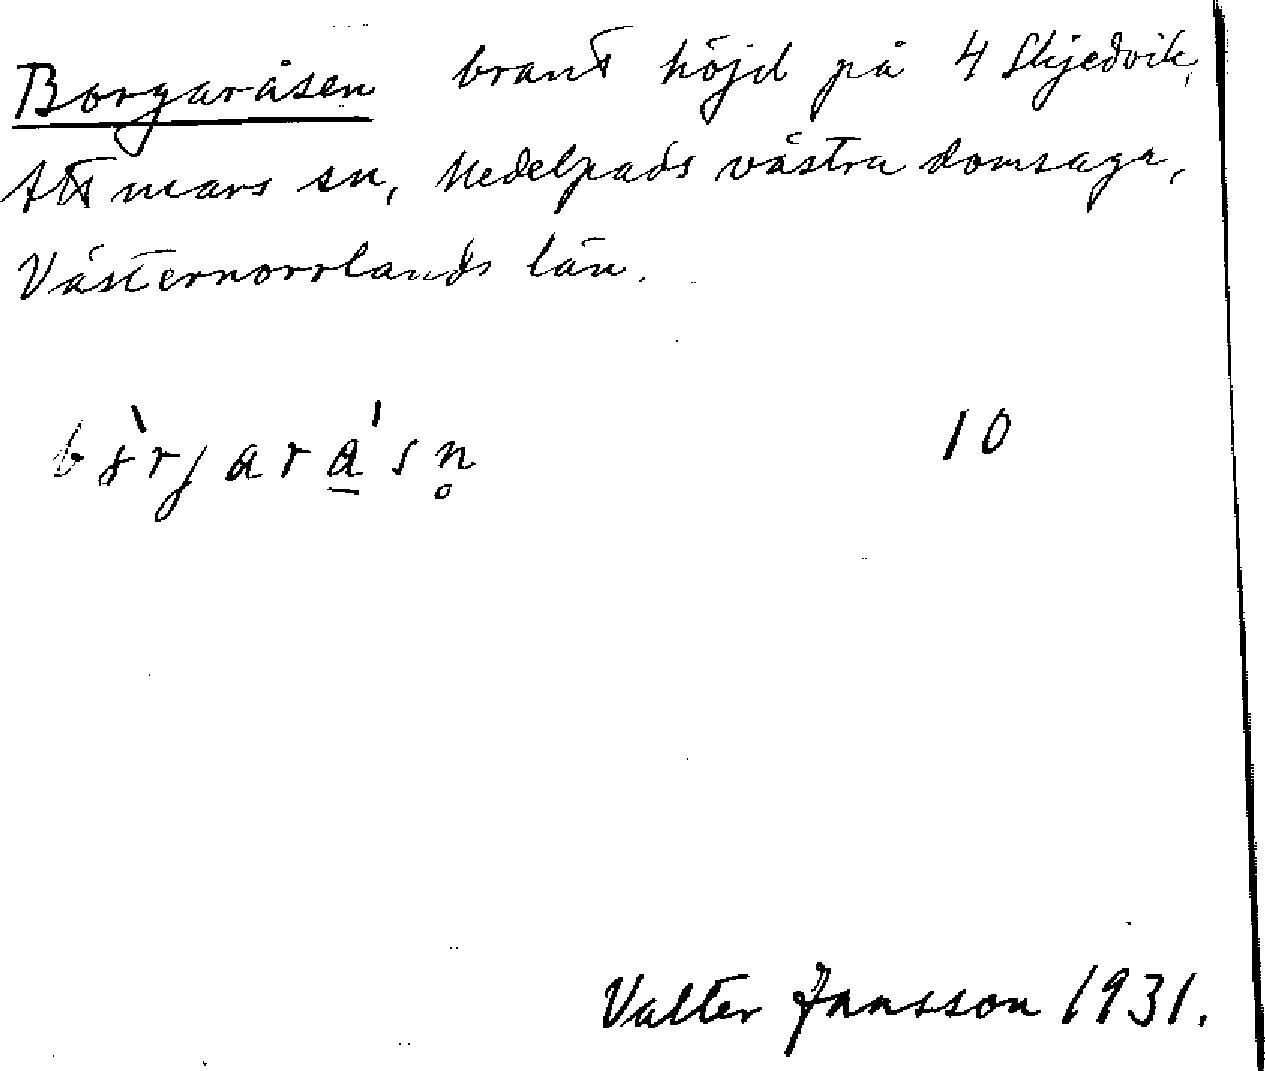 Borgaråsen brant höjd på 4 Skjedvik,
Attmars sn, Medelpads västra domsaga,
Västernorrlands län.
10
Valter Jansson 1931.